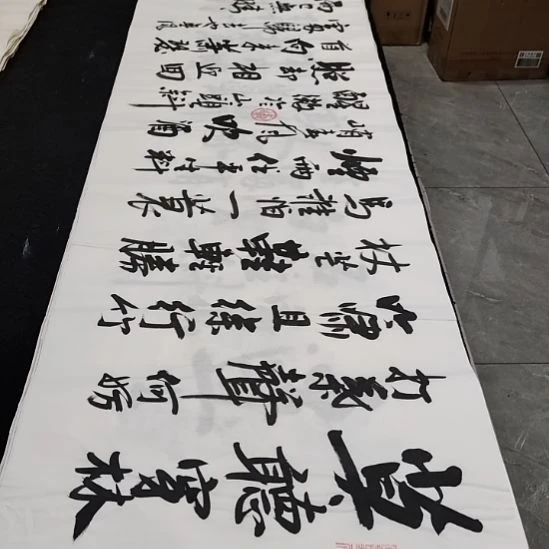 莫聽穿林
打葉聲何妨
吟嘯且徐行竹
杖芒鞋輕勝
馬誰怕一蓑
煙雨任平生料
峭春風吹酒
醒微冷山頭斜
照卻相迎回
首向來蕭瑟
處歸去也無風
雨也無晴